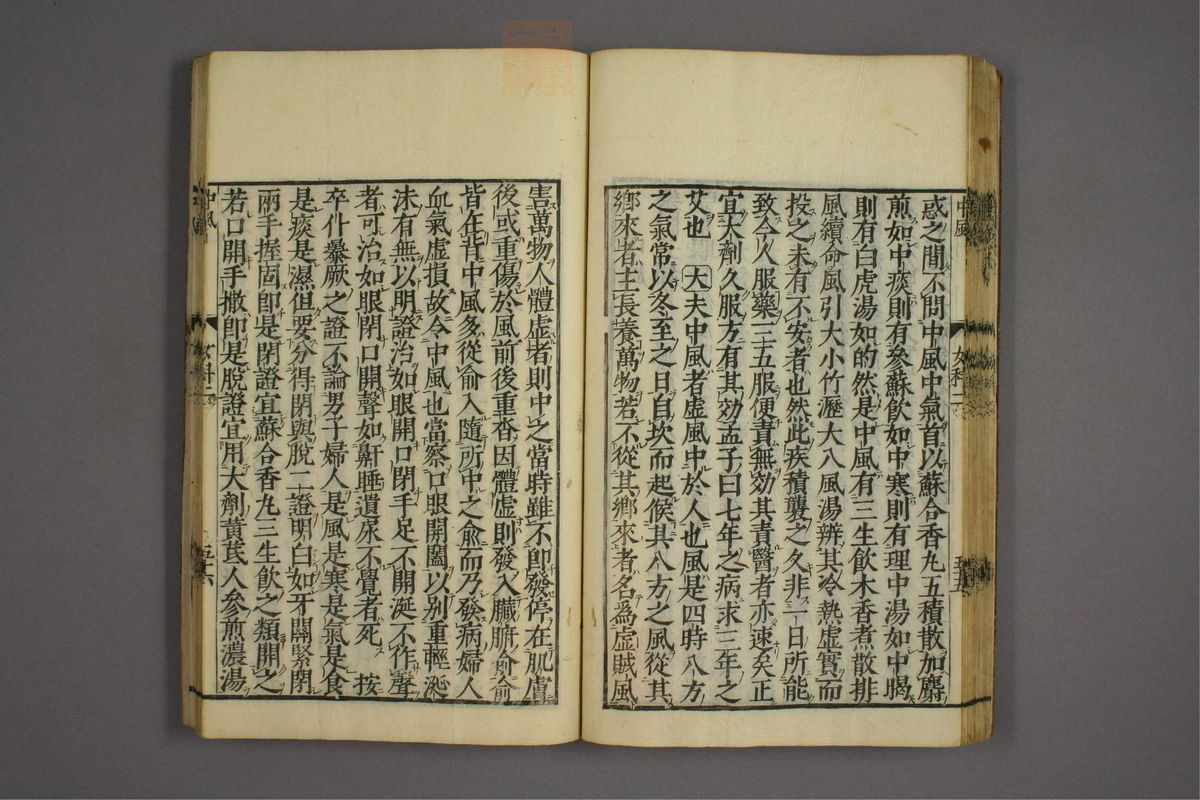 中風
女科二
五十五
惑之間不問中風中氣首以蘇合香丸五積散加麝
煎如中痰則有參蘇飲如中寒則有理中湯如中暍
則有白虎湯如的然是中風有三生飲木香煮散排
風續命風引大小竹瀝大八風湯辨其冷熱虛實而
投之未有不安者也然此疾積襲之久非一日所能
致今人服藥三五服便責無効其責醫者亦速矣正
宜大劑久服方有其効孟子曰七年之病求三年之
艾也 大夫中風者虛風中於人也風是四時八方
之氣常以冬至之日自坎而起候其八方之風從其
鄉來者主長養萬物若不從其鄉來者名爲虛賊風
害萬物人體虛者則中之當時雖不即發停在肌膚
後或重傷於風前後重沓因體虛則發入臟腑俞俞
皆在背中風多從俞入隨所中之俞而乃發病婦人
血氣虛損故令中風也當察口眼開闔以别重輕涎
沫有無以明證治如眼開口閉手足不開涎不作聲
者可治如眼閉口開聲如鼾睡遺尿不覺者死 按
卒仆暴厥之證不論男子婦人是風是寒是氣是食
是痰是濕但要分得閉與脫二證明白如牙關緊閉
兩手握固即是閉證宜蘇合香丸三生飲之類開之
若口開手撒即是脫證宜用大劑黃芪人參煎濃湯
中風
女科二
五十六